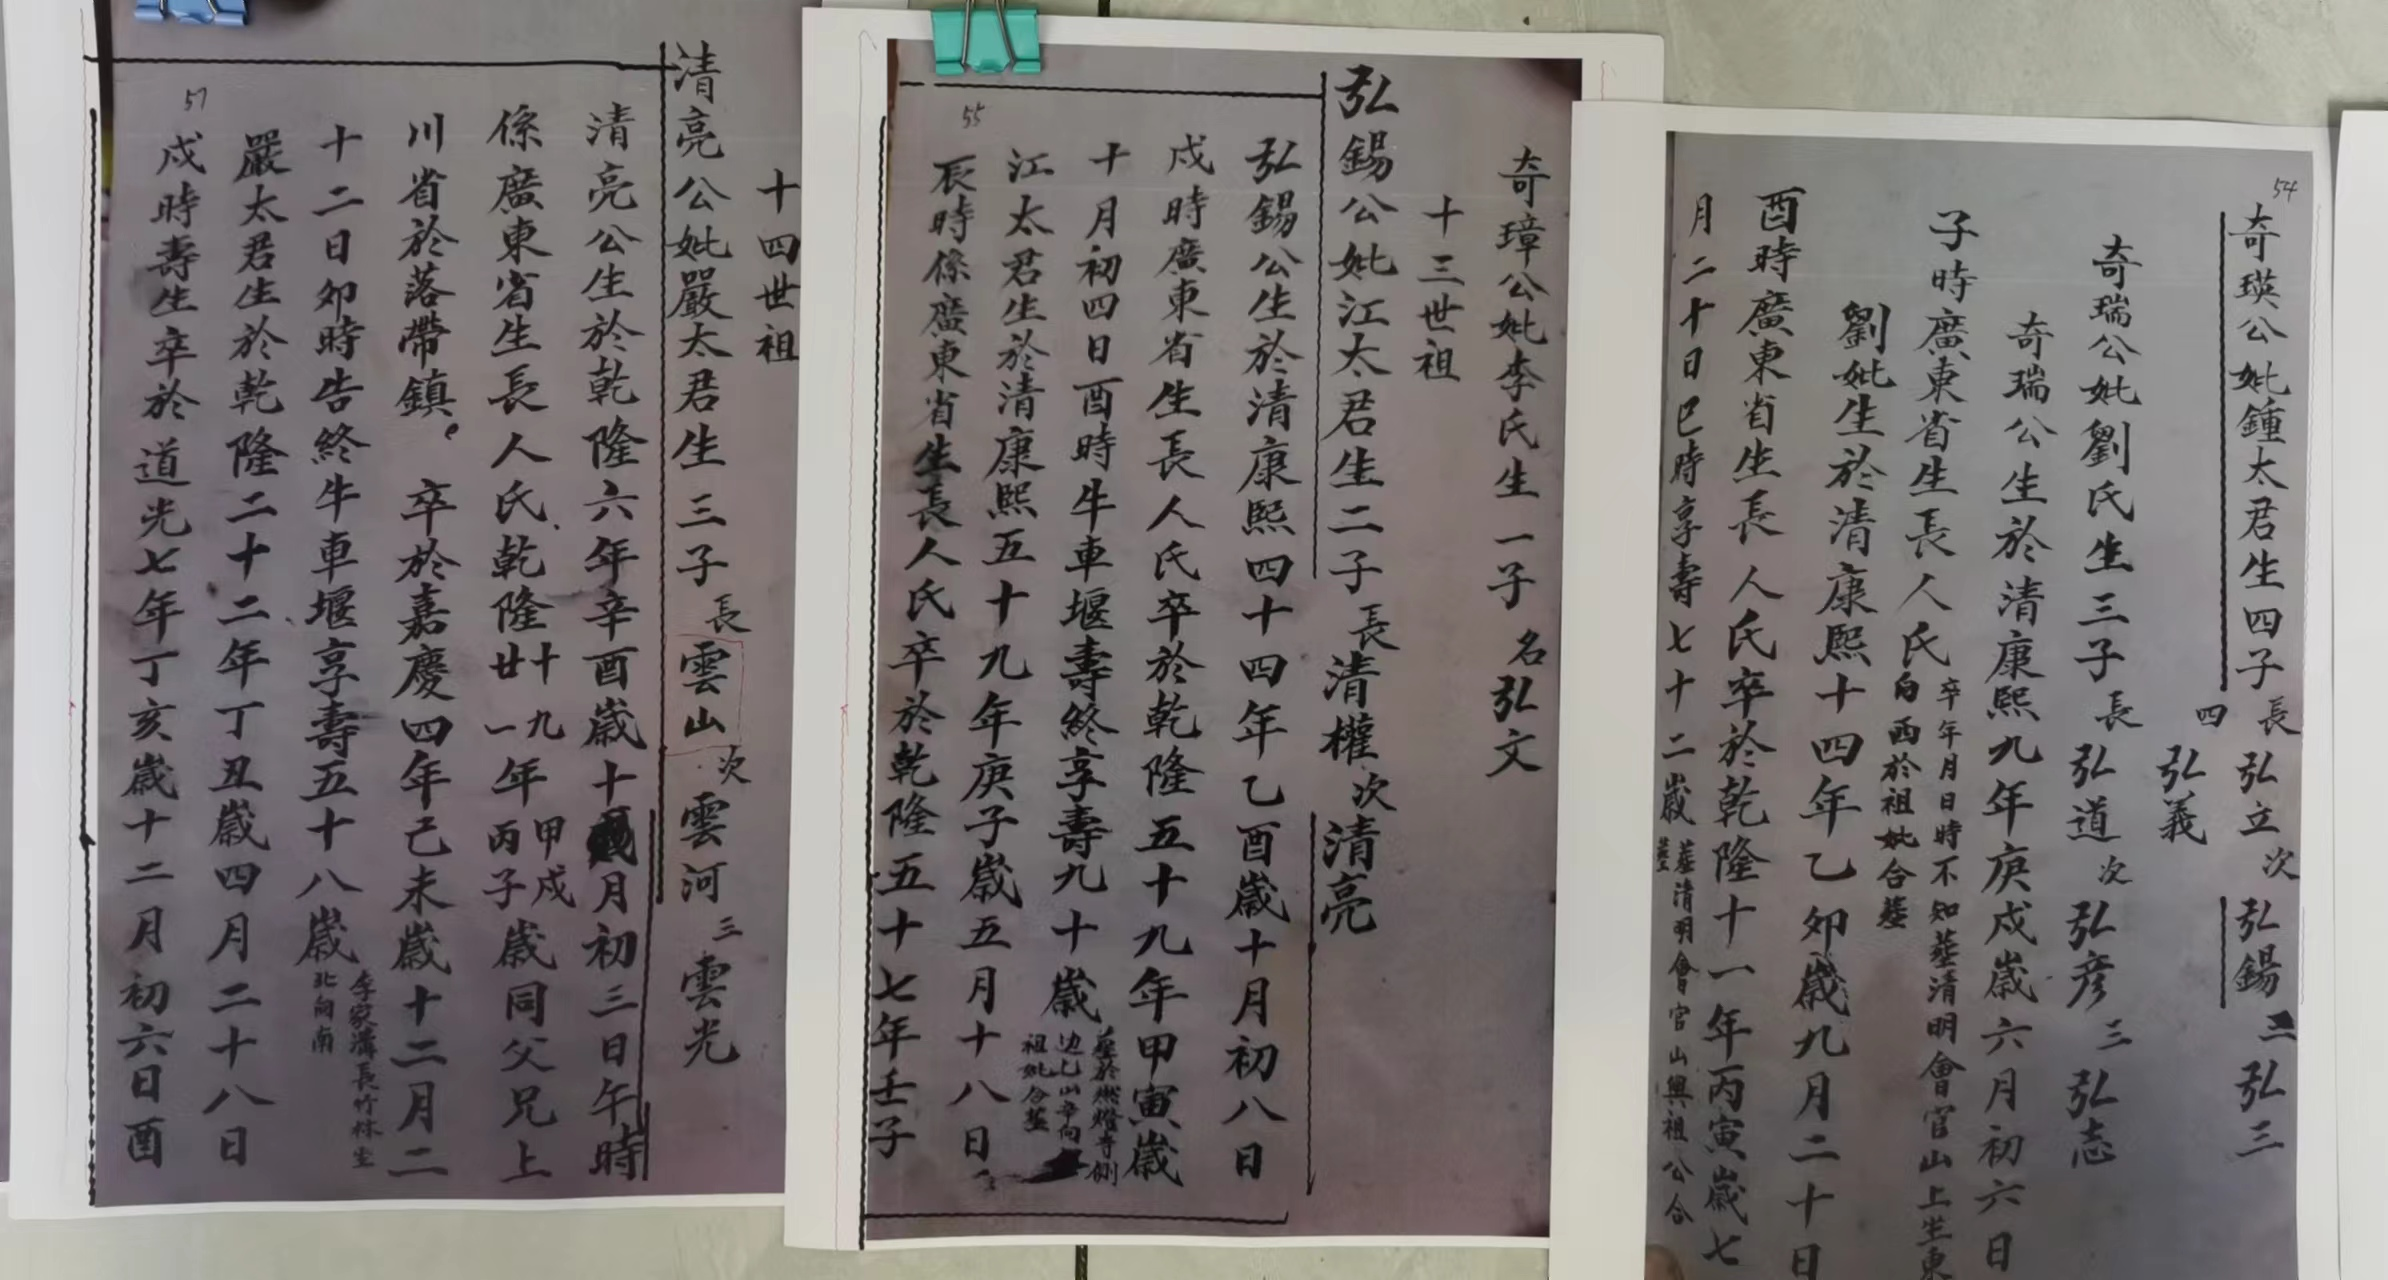 54
奇瑛公妣鍾太君生四子 長 弘立 次 弘錫 三 弘三
四 弘義
奇瑞公妣劉氏生三子 長 弘道 次 弘彦 三 弘志
奇瑞公生於清康熙九年庚戌歲六月初六日
子時廣東省生長人氏 卒年月日時不知塟清明會官山上坐東
向西於祖妣合塟
劉妣生於清康熙十四年乙卯歲九月二十日
酉時廣東省生長人氏卒於乾隆十一年丙寅歲七
月二十日巳時享壽七十二歲 塟清明會官山與祖公合
塟
奇璋公妣李氏生一子 名弘文
十三世祖
弘錫公妣江太君生二子 長清權 次清亮
55
弘錫公生於清康熙四十四年乙酉歲十月初八日
戌時廣東省生長人氏卒於乾隆五十九年甲寅歲
十月初四日酉時牛車堰壽終享壽九十歲 塟於燃燈寺側
边乙山辛向
祖妣合塟
江太君生於清康熙五十九年庚子歲五月十八日
辰時係廣東省生長人氏卒於乾隆五十七年壬子
十四世祖
清亮公妣嚴太君生三子 長雲山 次雲河 三雲光
57
清亮公生於乾隆六年辛酉歲十月初三日午時
係廣東省生長人氏乾隆十九年甲戌
廿一年丙子歲同父兄上
川省於落帶鎮。卒於嘉慶四年己未歲十二月二
十二日卯時告終牛車堰享壽五十八歲 李家溝長竹林坐
北向南
嚴太君生於乾隆二十二年丁丑歲四月二十八日
戌時壽生卒於道光七年丁亥歲十二月初六日酉